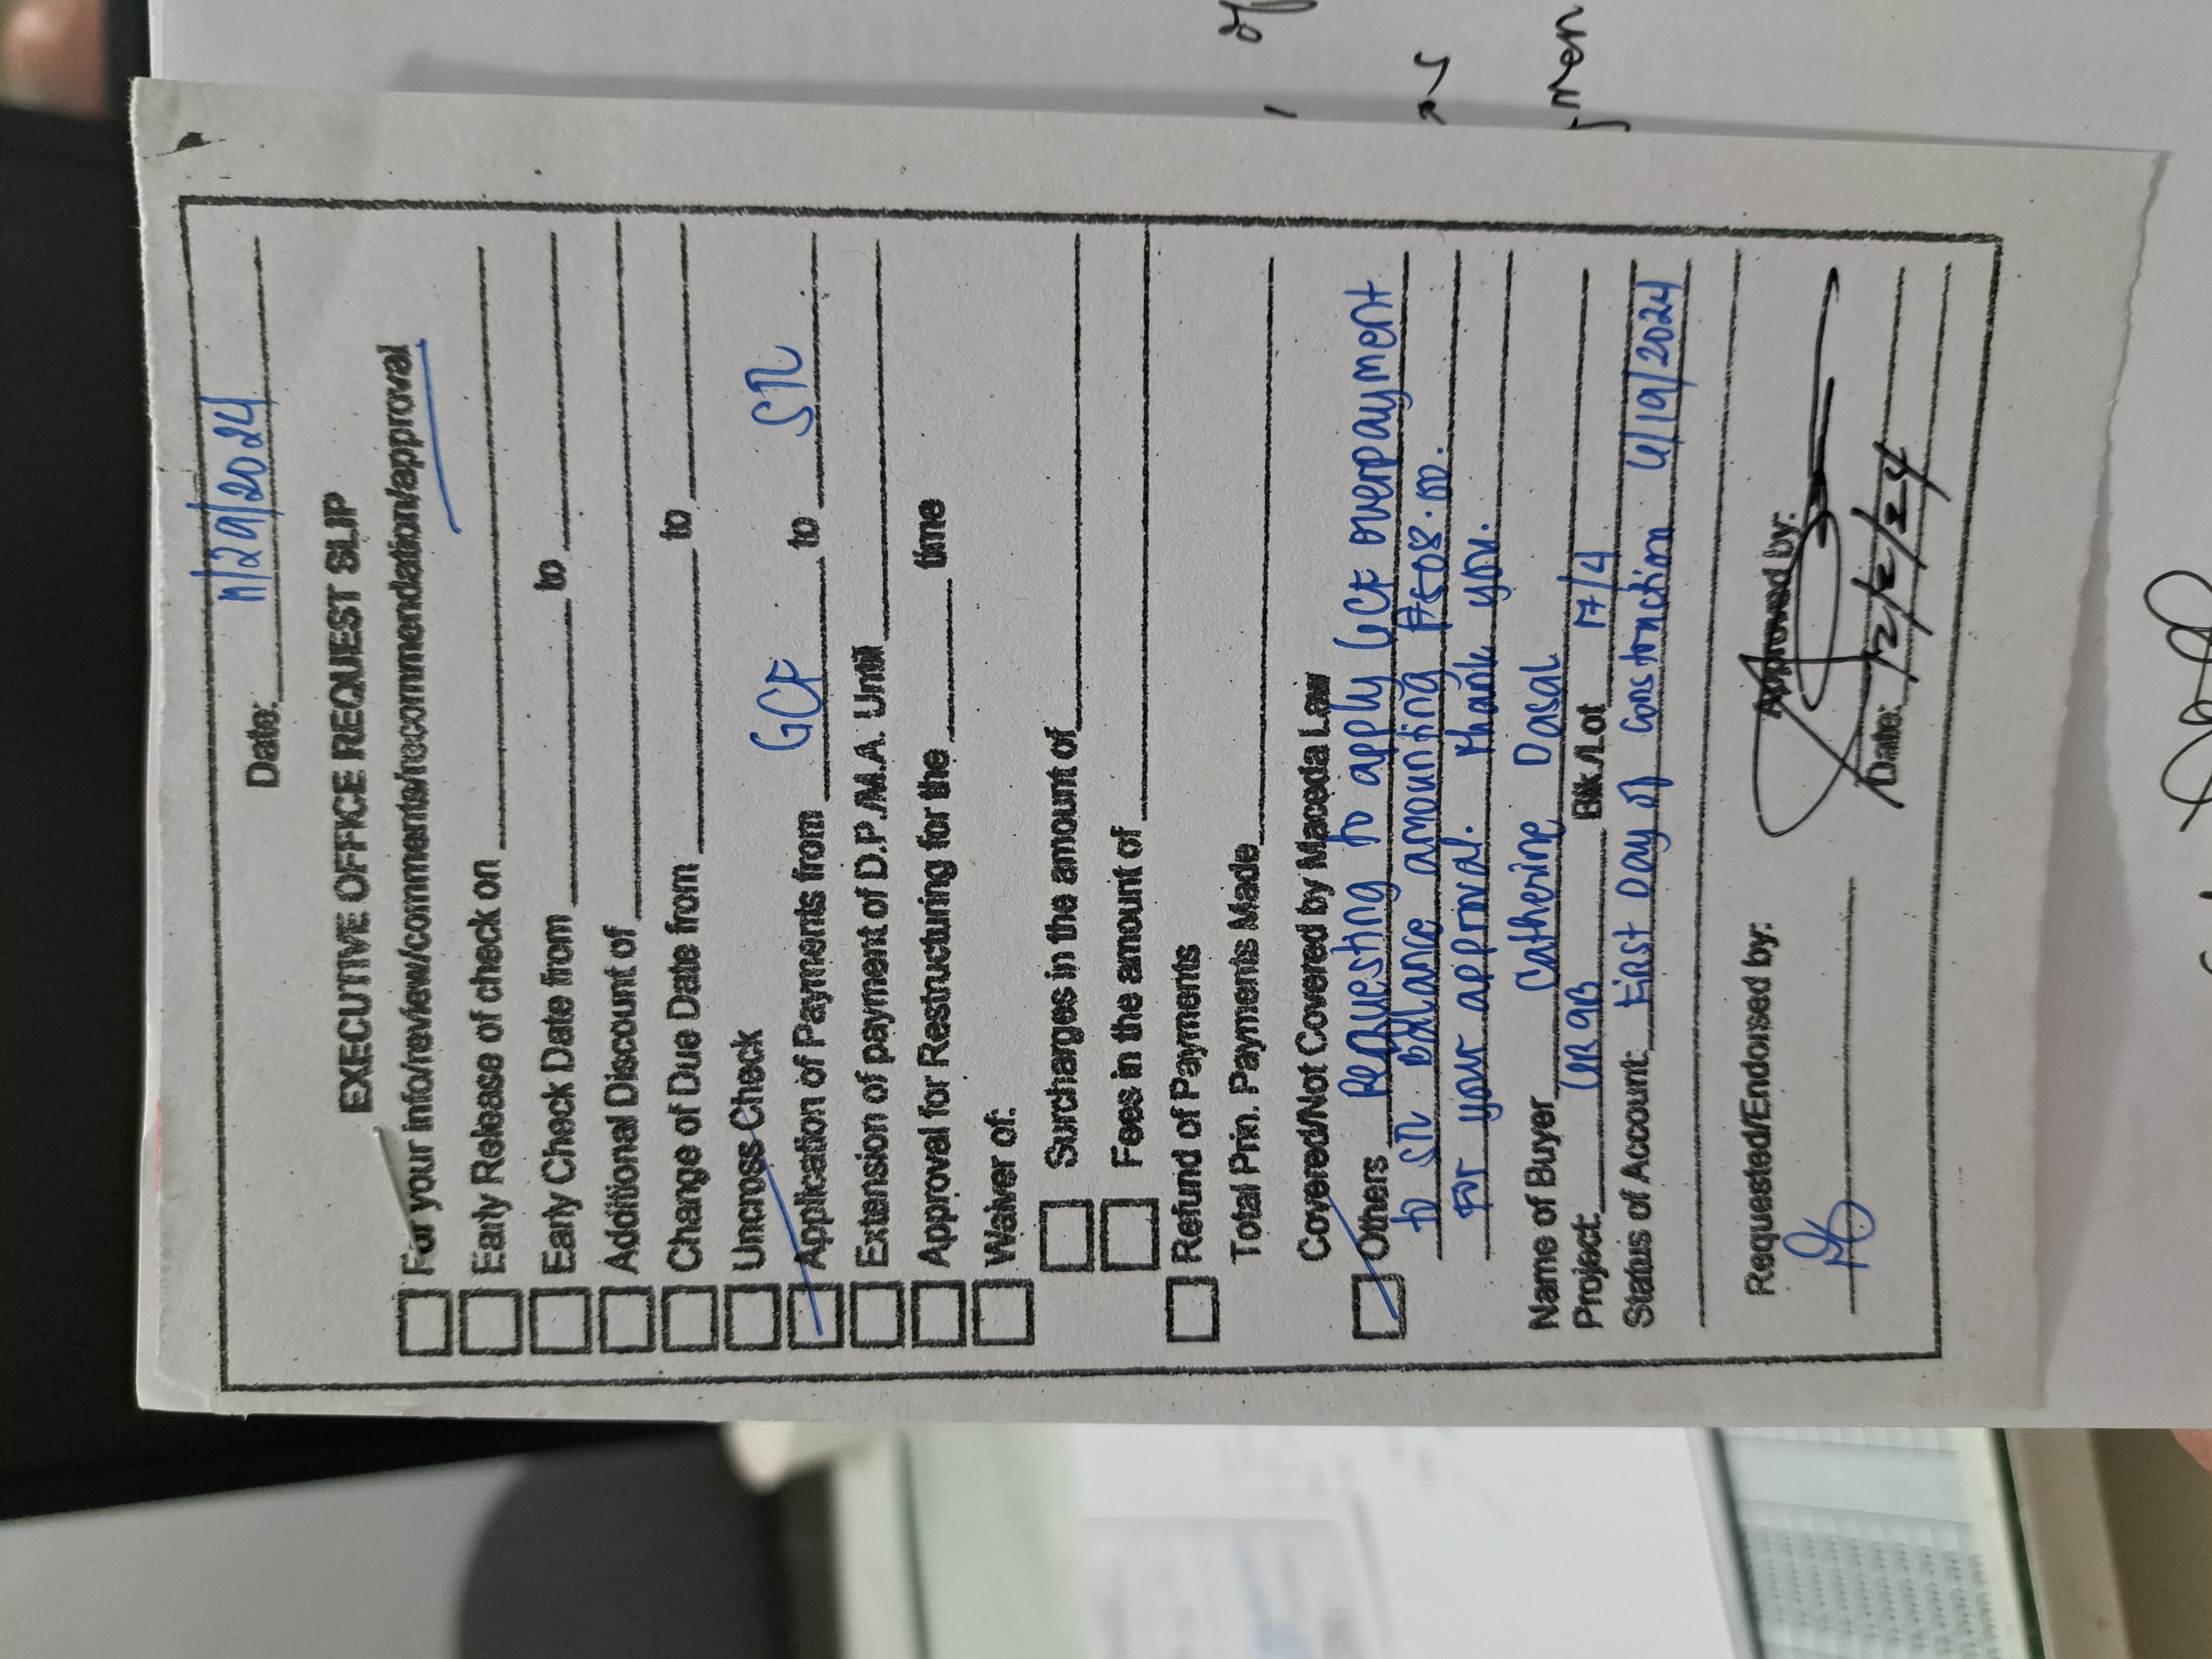 Date: 11/29/2024
EXECUTIVE OFFICE REQUEST SLIP
For your info/review/comments/recommendation/approval
Early Release of check on
Early Check Date from to
Additional Discount of
Change of Due Date from to
Uncross Check
Application of Payments from GCF to SR
Extension of payment of D.P./M.A. Until
Approval for Restructuring for the time
Waiver of:
Surcharges in the amount of
Fees in the amount of
Refund of Payments
Total Prin. Payments Made
Covered/Not Covered by Maceda Law
Others Requesting to apply GCF overpayment
to SR Balance amounting ₱508.00.
For your approval. Thank you.
Name of Buyer Catherine Dasal
Project: Blk./Lot 17/4
Status of Account: First Day of Construction /19/2024
Requested/Endorsed by:
Approved by:
Date: 12/2/24